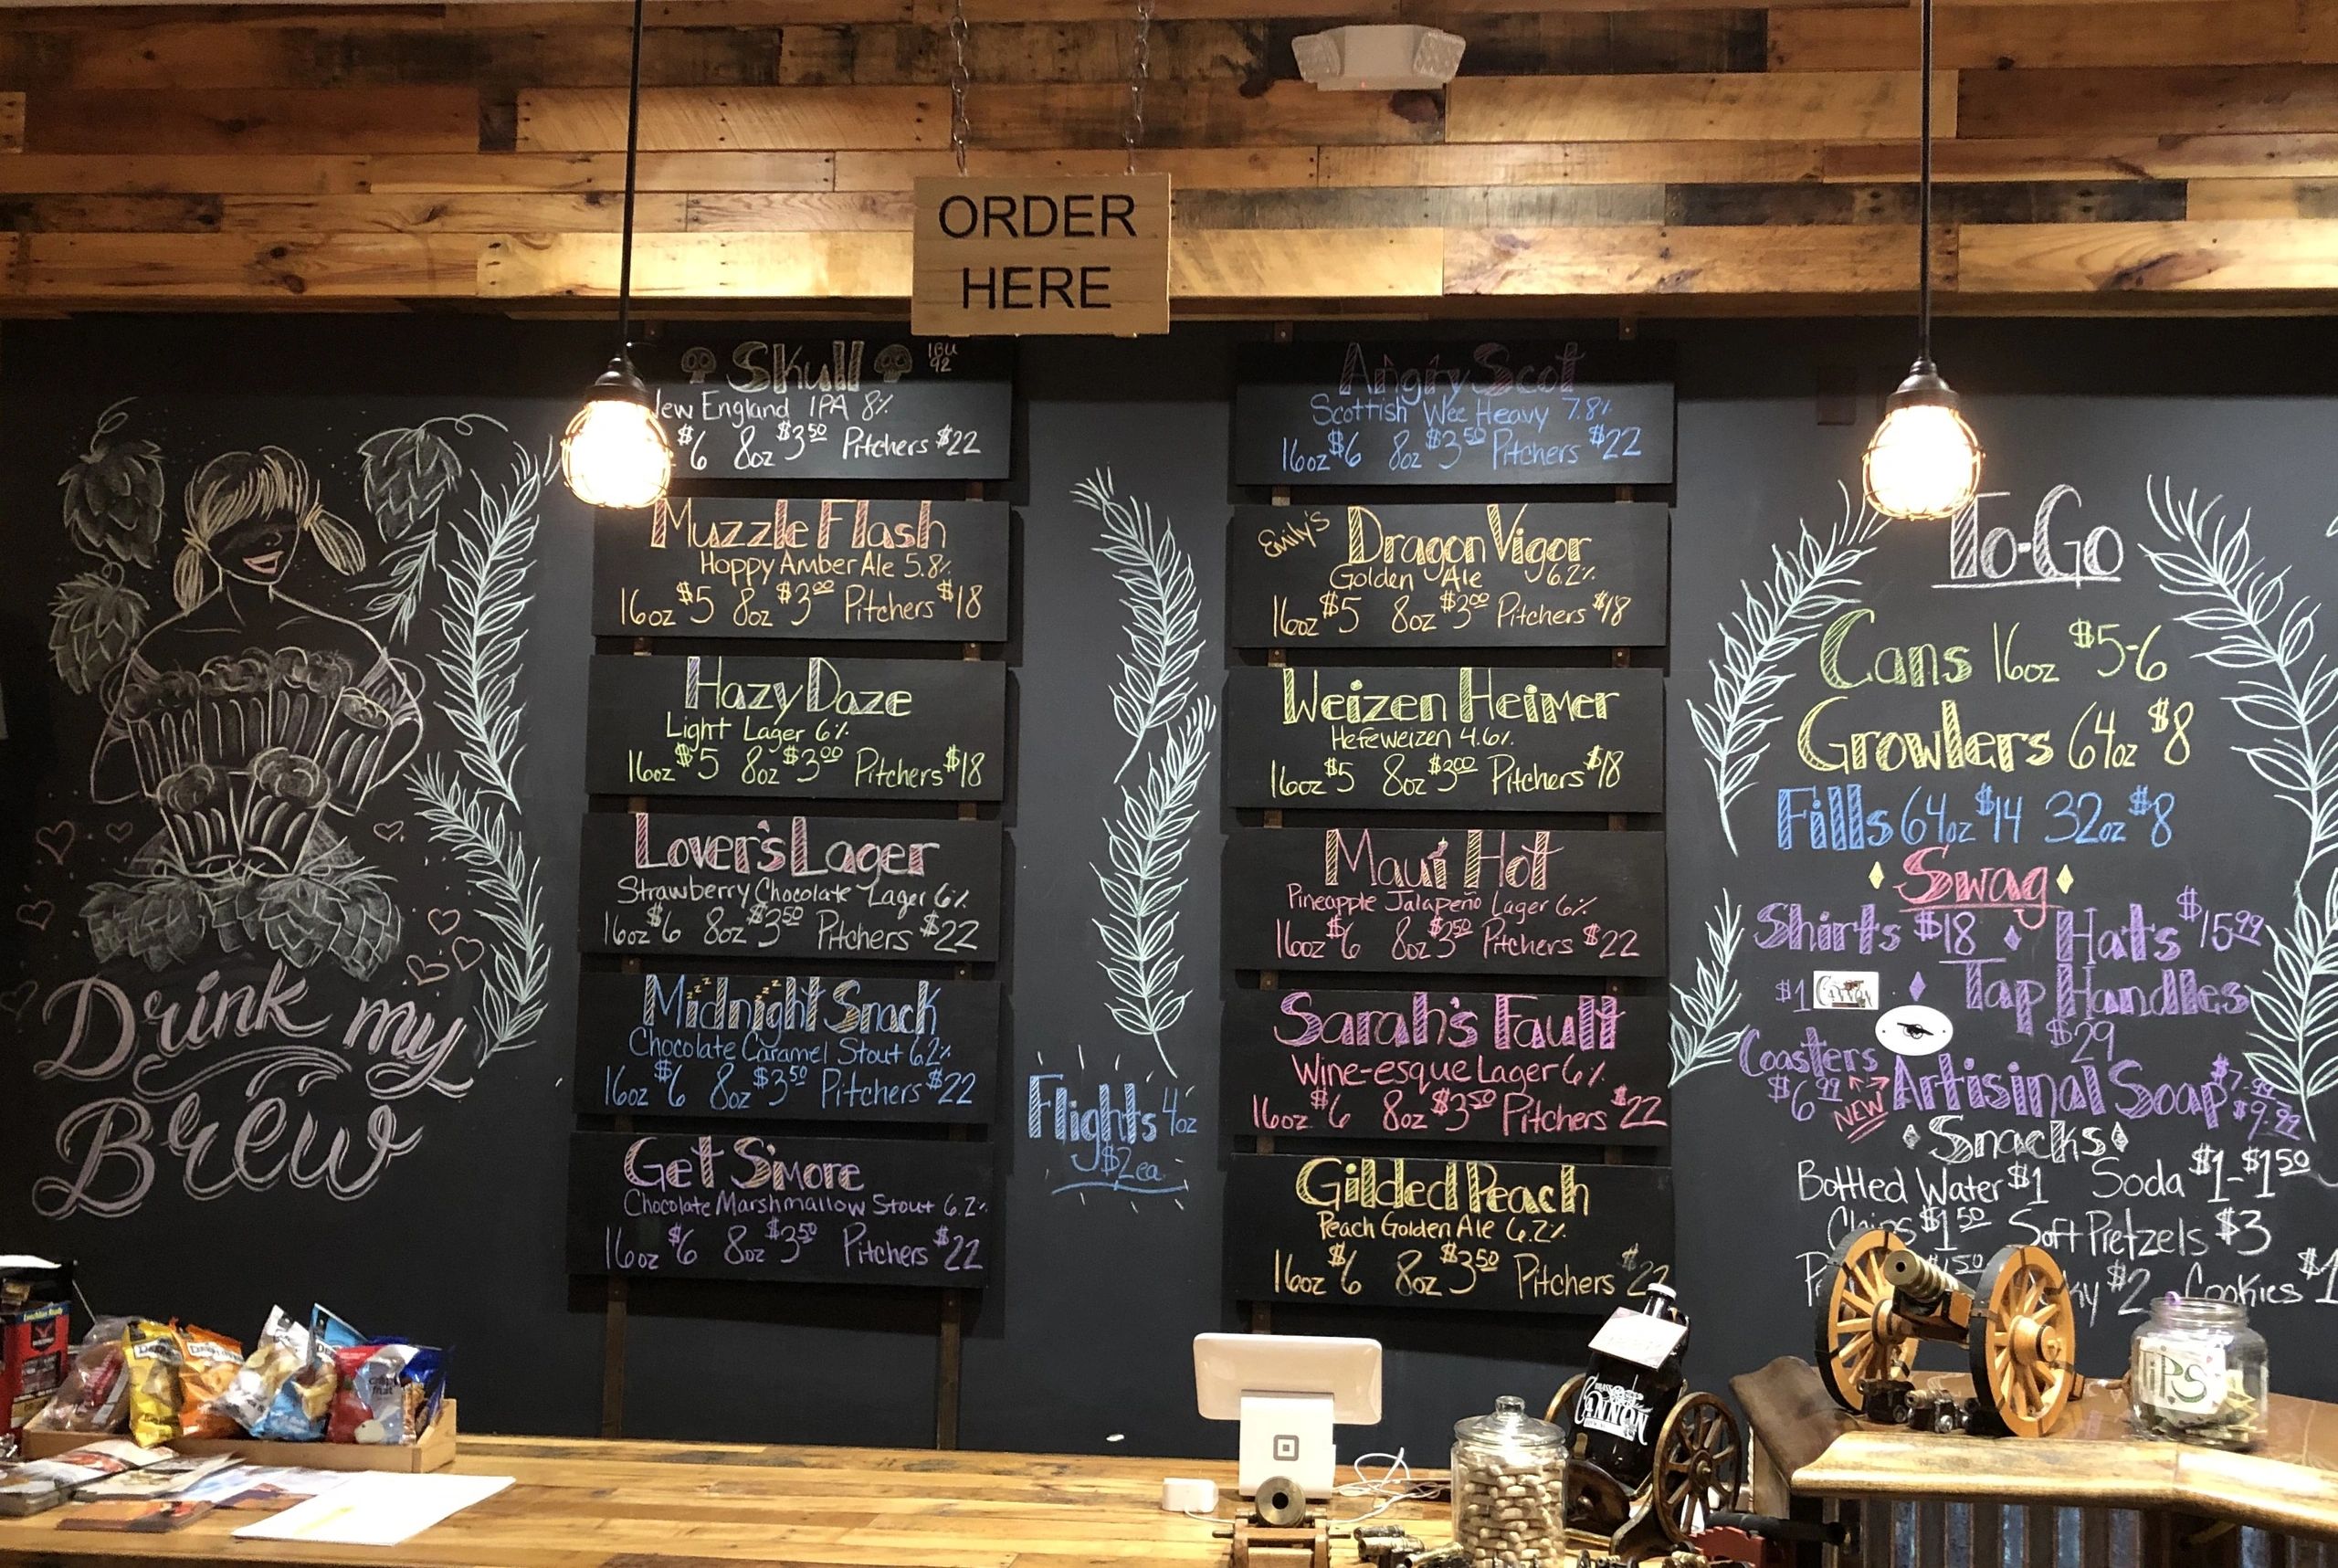 ORDER
HERE
Skull
IBU
92
New England IPA 8%
$6 8oz $3.50 Pitchers $22
Muzzle Flash
Hoppy Amber Ale 5.8%
16oz $5 8oz $3.00 Pitchers $18
Hazy Daze
Light Lager 6%
16oz $5 8oz $3.00 Pitchers $18
Lover's Lager
Strawberry Chocolate Lager 6%
16oz $6 8oz $3.50 Pitchers $22
Midnight Snack
zzz zzz
Chocolate Caramel Stout 6.2%
16oz $6 8oz $3.50 Pitchers $22
Get S'more
Chocolate Marshmallow Stout 6.2%
16oz $6 8oz $3.50 Pitchers $22
Drink my
Brew
Flights 4oz
$2ea
Angry Scot
Scottish Wee Heavy 7.8%
16oz $6 8oz $3.50 Pitchers $22
Emily's Dragon Vigor
Golden Ale 6.2%
16oz $5 8oz $3.00 Pitchers $18
Weizen Heimer
Hefeweizen 4.6%
16oz $5 8oz $3.00 Pitchers $18
Maui Hot
Pineapple Jalapeño Lager 6%
16oz $6 8oz $3.50 Pitchers $22
Sarah's Fault
Wine-esque Lager 6%
16oz $6 8oz $3.50 Pitchers $22
Gilded Peach
Peach Golden Ale 6.2%
16oz $6 8oz $3.50 Pitchers $22
To-Go
Cans 16oz $5-6
Growlers 64oz $8
Fills 64oz $14 32oz $8
Swag
Shirts $18 Hats $15.99
$1 Cannon Tap Handles
$29
Coasters
$6.99
NEW
Artisinal Soap $7.99
$9.99
Snacks
Bottled Water $1 Soda $1-$1.50
Chips $1.50 Soft Pretzels $3
$1.50 $2 Cookies $1
CANNON
TIPS